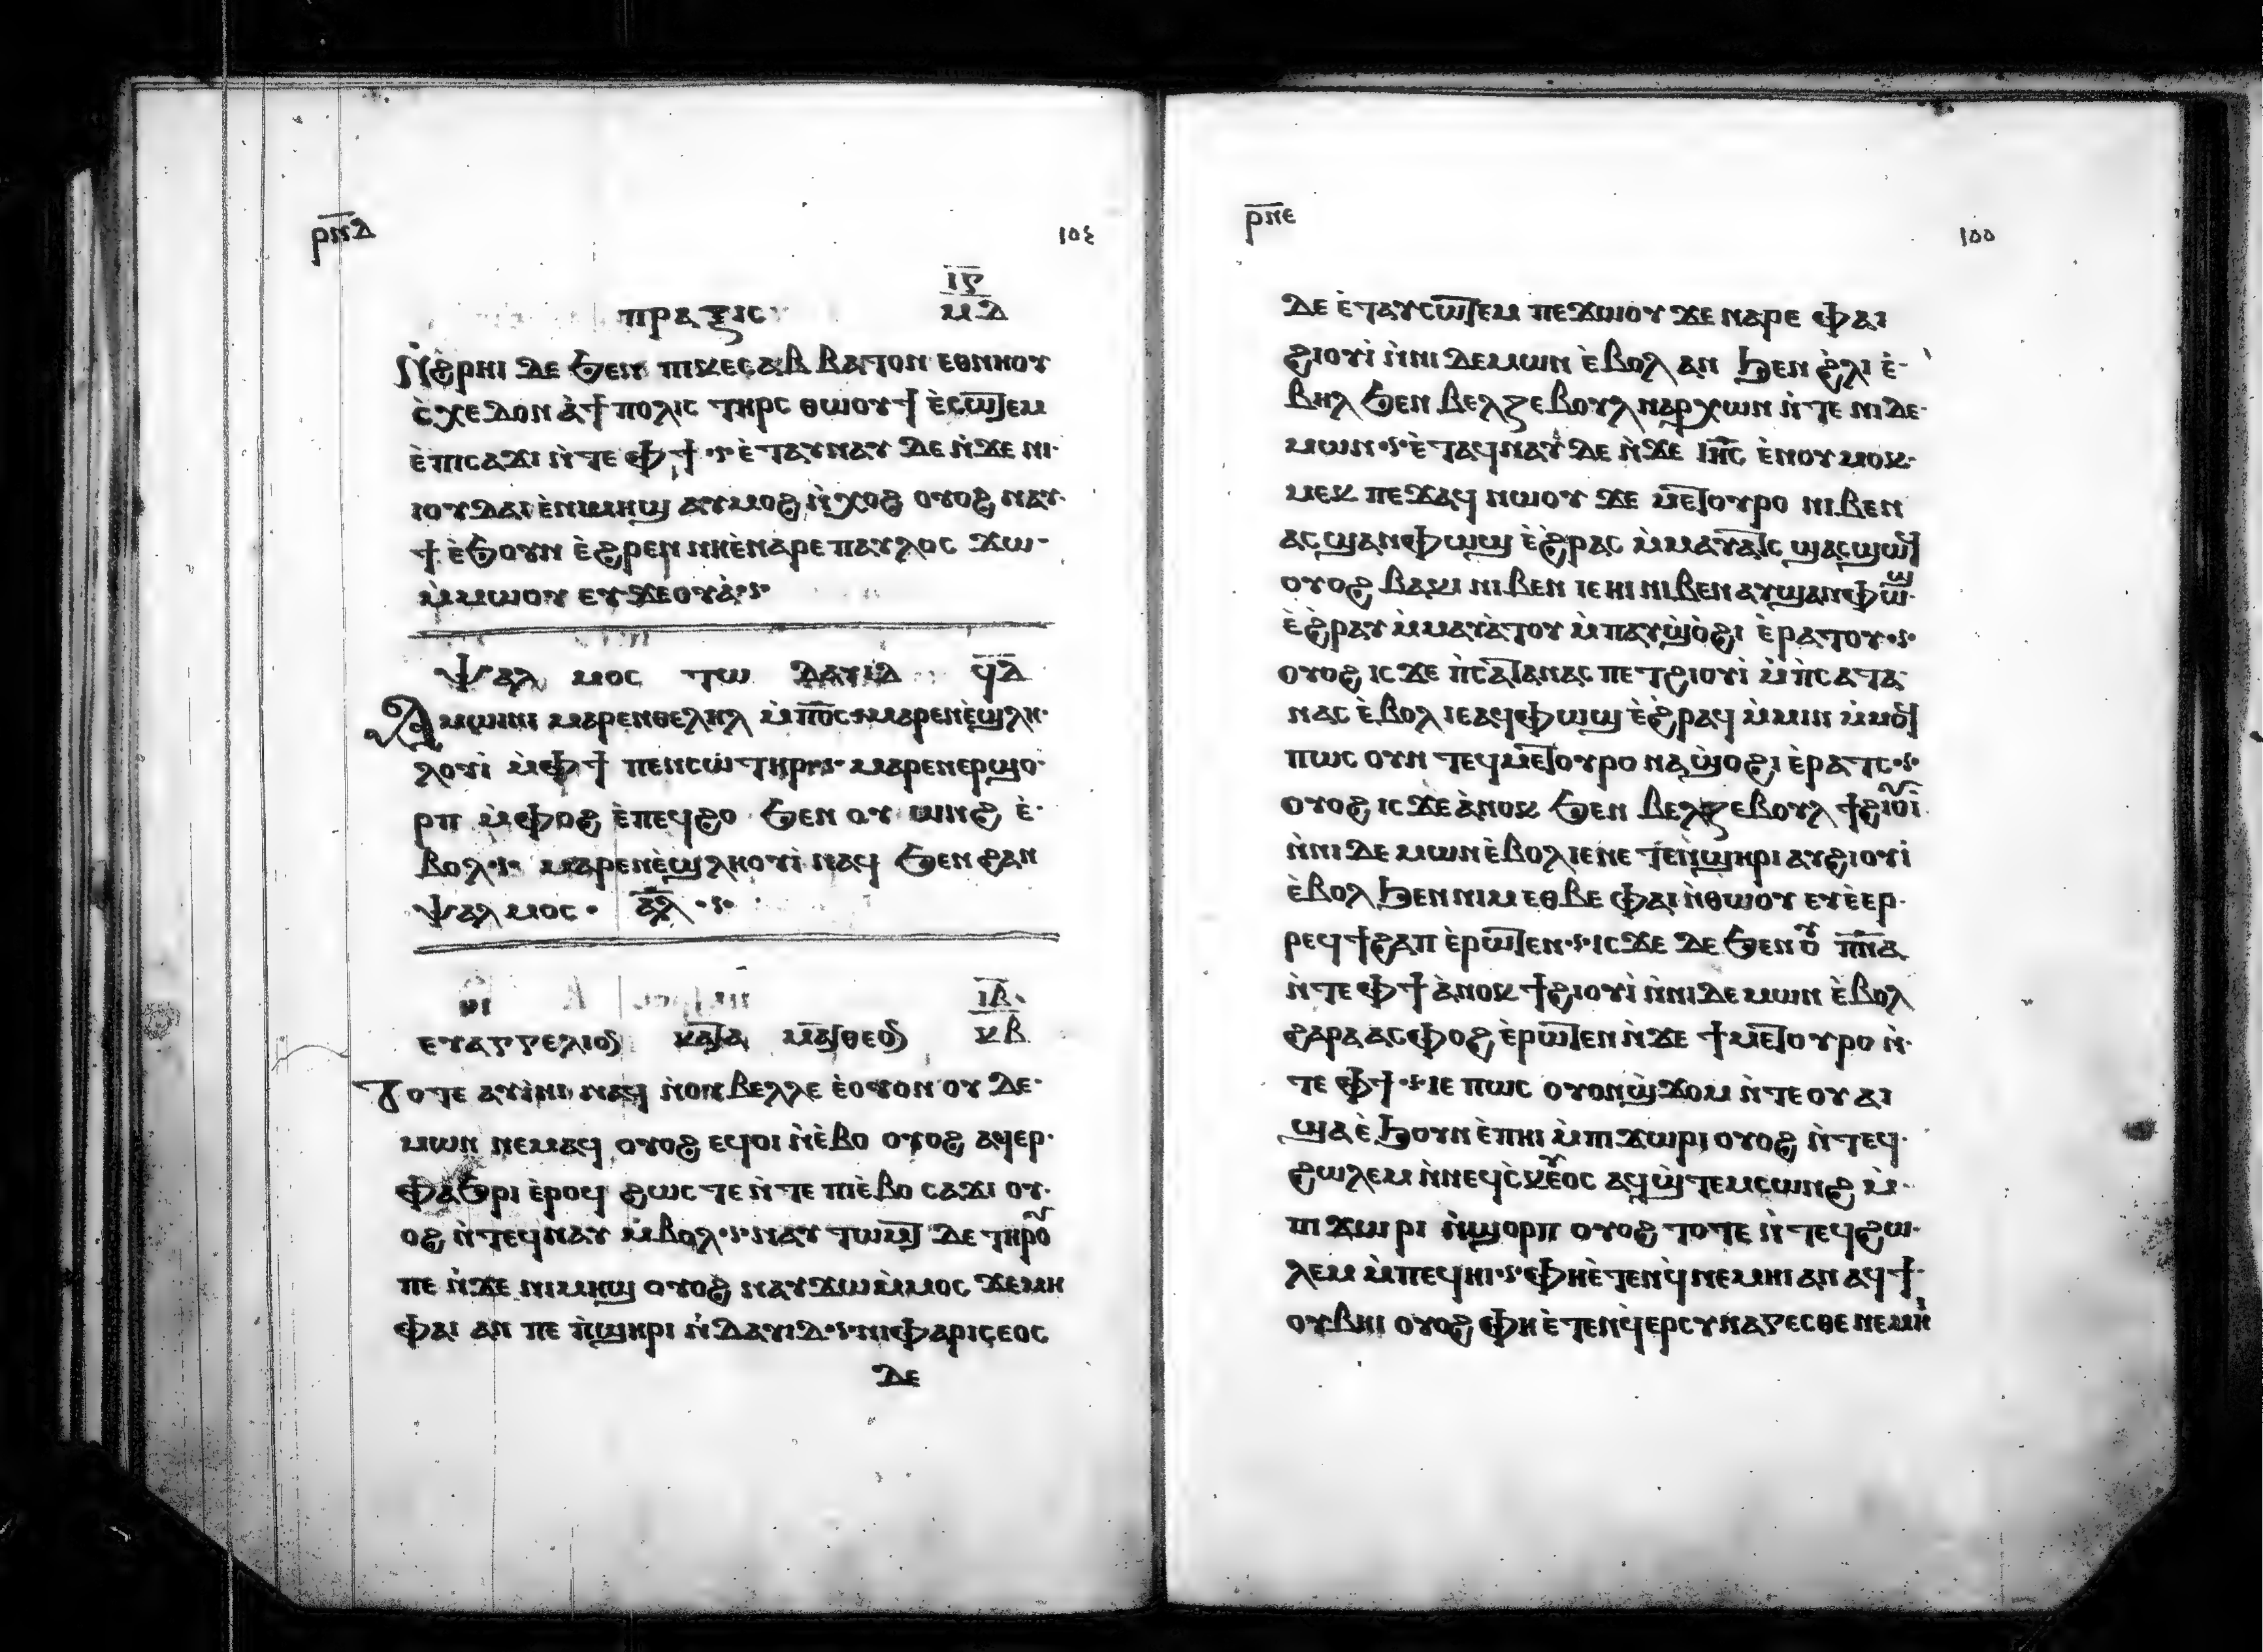 ⲣ̅ⲛ̅ⲇ̅
١٥٤
ⲓ̅ⲅ̅
ⲡⲣⲁⲝⲓⲥ ⲙ̅ⲇ̅
Ⲛ̀ϩ̀ⲣⲏⲓ ⲇⲉ ϧⲉⲛ ⲡⲓⲕⲉⲥⲁⲃⲃⲁⲧⲟⲛ ⲉⲑⲛⲏⲟⲩ
ⲥ̀ⲭⲉⲇⲟⲛ ⲁ̀ϯⲡⲟⲗⲓⲥ ⲧⲏⲣⲥ ⲑⲱⲟⲩϯ ⲉ̀ⲥⲱ̅ⲧⲉⲙ
ⲉ̀ⲡⲓⲥⲁϫⲓ ⲛ̀ⲧⲉ ⲫϯ ⲉ̀ⲧⲁⲩⲛⲁⲩ ⲇⲉ ⲛ̀ϫⲉ ⲛⲓ
ⲓⲟⲩⲇⲁⲓ ⲉ̀ⲛⲓⲙⲏϣ ⲁⲩⲙⲟϩ ⲛ̀ⲭⲟϩ ⲟⲩⲟϩ ⲛⲁⲩ
ϯ ⲉ̀ϧⲟⲩⲛ ⲉ̀ϩⲣⲉⲛ ⲛⲏⲉ̀ⲛⲁⲣⲉ ⲡⲁⲩⲗⲟⲥ ϫⲱ
ⲙ̀ⲙⲱⲟⲩ ⲉⲩϫⲉⲟⲩⲁ̀
ⲯⲁⲗⲙⲟⲥ ⲧⲱ ⲇⲁⲩⲓⲇ ϥ̅ⲇ̅
Ⲁⲙⲱⲓⲛⲓ ⲙⲁⲣⲉⲛⲑⲉⲗⲏⲗ ⲙ̀ⲡ̅ⲟ̅ⲥ̅ ⲙⲁⲣⲉⲛⲉ̀ϣⲗⲏ
ⲗⲟⲩⲓ̀ ⲙ̀ⲫϯ ⲡⲉⲛⲥⲱ̀ⲧⲏⲣ ⲙⲁⲣⲉⲛⲉⲣϣⲟ
ⲣⲡ ⲙ̀ⲫⲟϩ ⲉ̀ⲡⲉϥϩⲟ ϧⲉⲛ ⲟⲩⲱⲛϩ ⲉ̀
ⲃⲟⲗ ⲙⲁⲣⲉⲛⲉ̀ϣⲗⲏⲟⲩⲓ̀ ⲛⲁϥ ϧⲉⲛ ϩⲁⲛ
ⲯⲁⲗⲙⲟⲥ ⲁ̅ⲗ̅
ⲓ̅ⲃ̅
ⲉⲩⲁⲅⲅⲉⲗⲓⲟⲛ ⲕⲁⲧⲁ ⲙⲁⲧⲑⲉⲟⲛ ⲕⲃ
Ⲧⲟⲧⲉ ⲁⲩⲓ̀ⲛⲓ ⲛⲁϥ ⲛ̀ⲟⲩⲃⲉⲗⲗⲉ ⲉ̀ⲟⲩⲟⲛ ⲟⲩ ⲇⲉ
ⲙⲱⲛ ⲛⲉⲙⲁϥ ⲟⲩⲟϩ ⲉϥⲟⲓ ⲛ̀ⲉ̀ⲃⲟ ⲟⲩⲟϩ ⲁϥⲉⲣ
ⲫⲁϧⲣⲓ ⲉ̀ⲣⲟϥ ϩⲱⲥ ⲧⲉ ⲛ̀ⲧⲉ ⲡⲓⲉ̀ⲃⲟ ⲥⲁϫⲓ ⲟⲩ
ⲟϩ ⲛ̀ⲧⲉϥⲛⲁⲩ ⲙ̀ⲃⲟⲗ ⲛⲁⲩ ⲧⲱⲙⲧ ⲇⲉ ⲧⲏⲣⲟⲩ
ⲡⲉ ⲛ̀ϫⲉ ⲛⲓⲙⲏϣ ⲟⲩⲟϩ ⲛⲁⲩϫⲱ ⲙ̀ⲙⲟⲥ ϫⲉ ⲙⲏ
ⲫⲁⲓ ⲁⲛ ⲡⲉ ⲡ̀ϣⲏⲣⲓ ⲛ̀ⲇⲁⲩⲓⲇ ⲛⲓⲫⲁⲣⲓⲥⲉⲟⲥ
ⲇⲉ
ⲣ̅ⲛ̅ⲉ̅
١٥٥
ⲇⲉ ⲉ̀ⲧⲁⲩⲥⲱ̅ⲧⲉⲙ ⲡⲉϫⲱⲟⲩ ϫⲉ ⲛⲁⲣⲉ ⲫⲁⲓ
ϩⲓⲟⲩⲓ̀ ⲛ̀ⲛⲓ ⲇⲉⲙⲱⲛ ⲉ̀ⲃⲟⲗ ⲁⲛ ϧⲉⲛ ϩ̀ⲗⲓ ⲉ̀
ⲃⲏⲗ ϧⲉⲛ ⲃⲉⲗⲍⲉⲃⲟⲩⲗ ⲡⲁⲣⲭⲱⲛ ⲛ̀ⲧⲉ ⲛⲓⲇⲉ
ⲙⲱⲛ ⲉ̀ⲧⲁϥⲛⲁⲩ ⲇⲉ ⲛ̀ϫⲉ ⲓ̅ⲏ̅ⲥ̅ ⲉ̀ⲛⲟⲩⲙⲟⲕ
ⲙⲉⲕ ⲡⲉϫⲁϥ ⲛⲱⲟⲩ ϫⲉ ⲙⲉⲧⲟⲩⲣⲟ ⲛⲓⲃⲉⲛ
ⲁⲥϣⲁⲛⲫⲱϣ ⲉ̀ϩ̀ⲣⲁⲥ ⲙ̀ⲙⲁⲩⲁⲧⲥ ϣⲁⲥϣⲱϥ
ⲟⲩⲟϩ ⲃⲁⲕⲓ ⲛⲓⲃⲉⲛ ⲓⲉ ⲏⲓ ⲛⲓⲃⲉⲛ ⲁⲩϣⲁⲛⲫⲱϣ
ⲉ̀ϩ̀ⲣⲁⲩ ⲙ̀ⲙⲁⲩⲁ̀ⲧⲟⲩ ⲙ̀ⲡⲁⲩϣ̀ⲟ̀ϩⲓ ⲉ̀ⲣⲁⲧⲟⲩ
ⲟⲩⲟϩ ⲓⲥϫⲉ ⲡ̀ⲥⲁⲧⲁⲛⲁⲥ ⲡⲉⲧϩⲓⲟⲩⲓ̀ ⲙ̀ⲡ̀ⲥⲁⲧⲁ
ⲛⲁⲥ ⲉ̀ⲃⲟⲗ ⲓⲉ ⲁϥⲫⲱϣ ⲉ̀ϩ̀ⲣⲁϥ ⲙ̀ⲙⲓⲛ ⲙ̀ⲙⲟϥ
ⲡⲱⲥ ⲟⲩⲛ ⲧⲉϥⲙⲉⲧⲟⲩⲣⲟ ⲛⲁϣ̀ⲟϩⲓ ⲉ̀ⲣⲁⲧⲥ
ⲟⲩⲟϩ ⲓⲥϫⲉ ⲁ̀ⲛⲟⲕ ϧⲉⲛ ⲃⲉⲗⲍⲉⲃⲟⲩⲗ ϯϩⲓⲟⲩⲓ̀
ⲛ̀ⲛⲓ ⲇⲉⲙⲱⲛ ⲉ̀ⲃⲟⲗ ⲓⲉ ⲛⲉⲧⲉⲛ̀ϣⲏⲣⲓ ⲁⲩϩⲓⲟⲩⲓ
ⲉ̀ⲃⲟⲗ ϧⲉⲛ ⲛⲓⲙ ⲉⲑⲃⲉ ⲫⲁⲓ ⲛ̀ⲑⲱⲟⲩ ⲉⲩⲉ̀ⲉⲣ
ⲣⲉϥϯϩⲁⲡ ⲉ̀ⲣⲱⲧⲉⲛ ⲓⲥϫⲉ ⲇⲉ ϧⲉⲛ ⲟⲩ ⲡ̅ⲛ̅ⲁ̅
ⲛ̀ⲧⲉ ⲫϯ ⲁ̀ⲛⲟⲕ ϯϩⲓⲟⲩⲓ̀ ⲛ̀ⲛⲓ ⲇⲉⲙⲱⲛ ⲉ̀ⲃⲟⲗ
ϩⲁⲣⲁ ⲁⲥⲫⲟϩ ⲉ̀ⲣⲱⲧⲉⲛ ⲛ̀ϫⲉ ϯⲙⲉⲧⲟⲩⲣⲟ ⲛ̀
ⲧⲉ ⲫϯ ⲓⲉ ⲡⲱⲥ ⲟⲩⲟⲛϣ̀ϫⲟⲙ ⲛ̀ⲧⲉ ⲟⲩⲁⲓ
ϣⲁ ⲉ̀ϧⲟⲩⲛ ⲉ̀ⲡⲏⲓ ⲙ̀ⲡⲓϫⲱⲣⲓ ⲟⲩⲟϩ ⲛ̀ⲧⲉϥ
ϩⲱⲗⲉⲙ ⲛ̀ⲛⲉϥⲥ̀ⲕⲉⲩⲟⲥ ⲁϥϣ̀ⲧⲉⲙⲥⲱⲛϩ ⲙ̀
ⲡⲓϫⲱⲣⲓ ⲛ̀ϣⲟⲣⲡ ⲟⲩⲟϩ ⲧⲟⲧⲉ ⲛ̀ⲧⲉϥϩⲱ
ⲗⲉⲙ ⲙ̀ⲡⲉϥⲏⲓ ⲫⲏⲉ̀ⲧⲉⲛϥ̀ⲛⲉⲙⲏⲓ ⲁⲛ ⲁϥϯ
ⲟⲩⲃⲏⲓ ⲟⲩⲟϩ ⲫⲏⲉ̀ⲧⲉⲛϥ̀ⲉⲣⲥⲩⲛⲁⲅⲉⲥⲑⲉ ⲛⲉⲙⲏⲓ